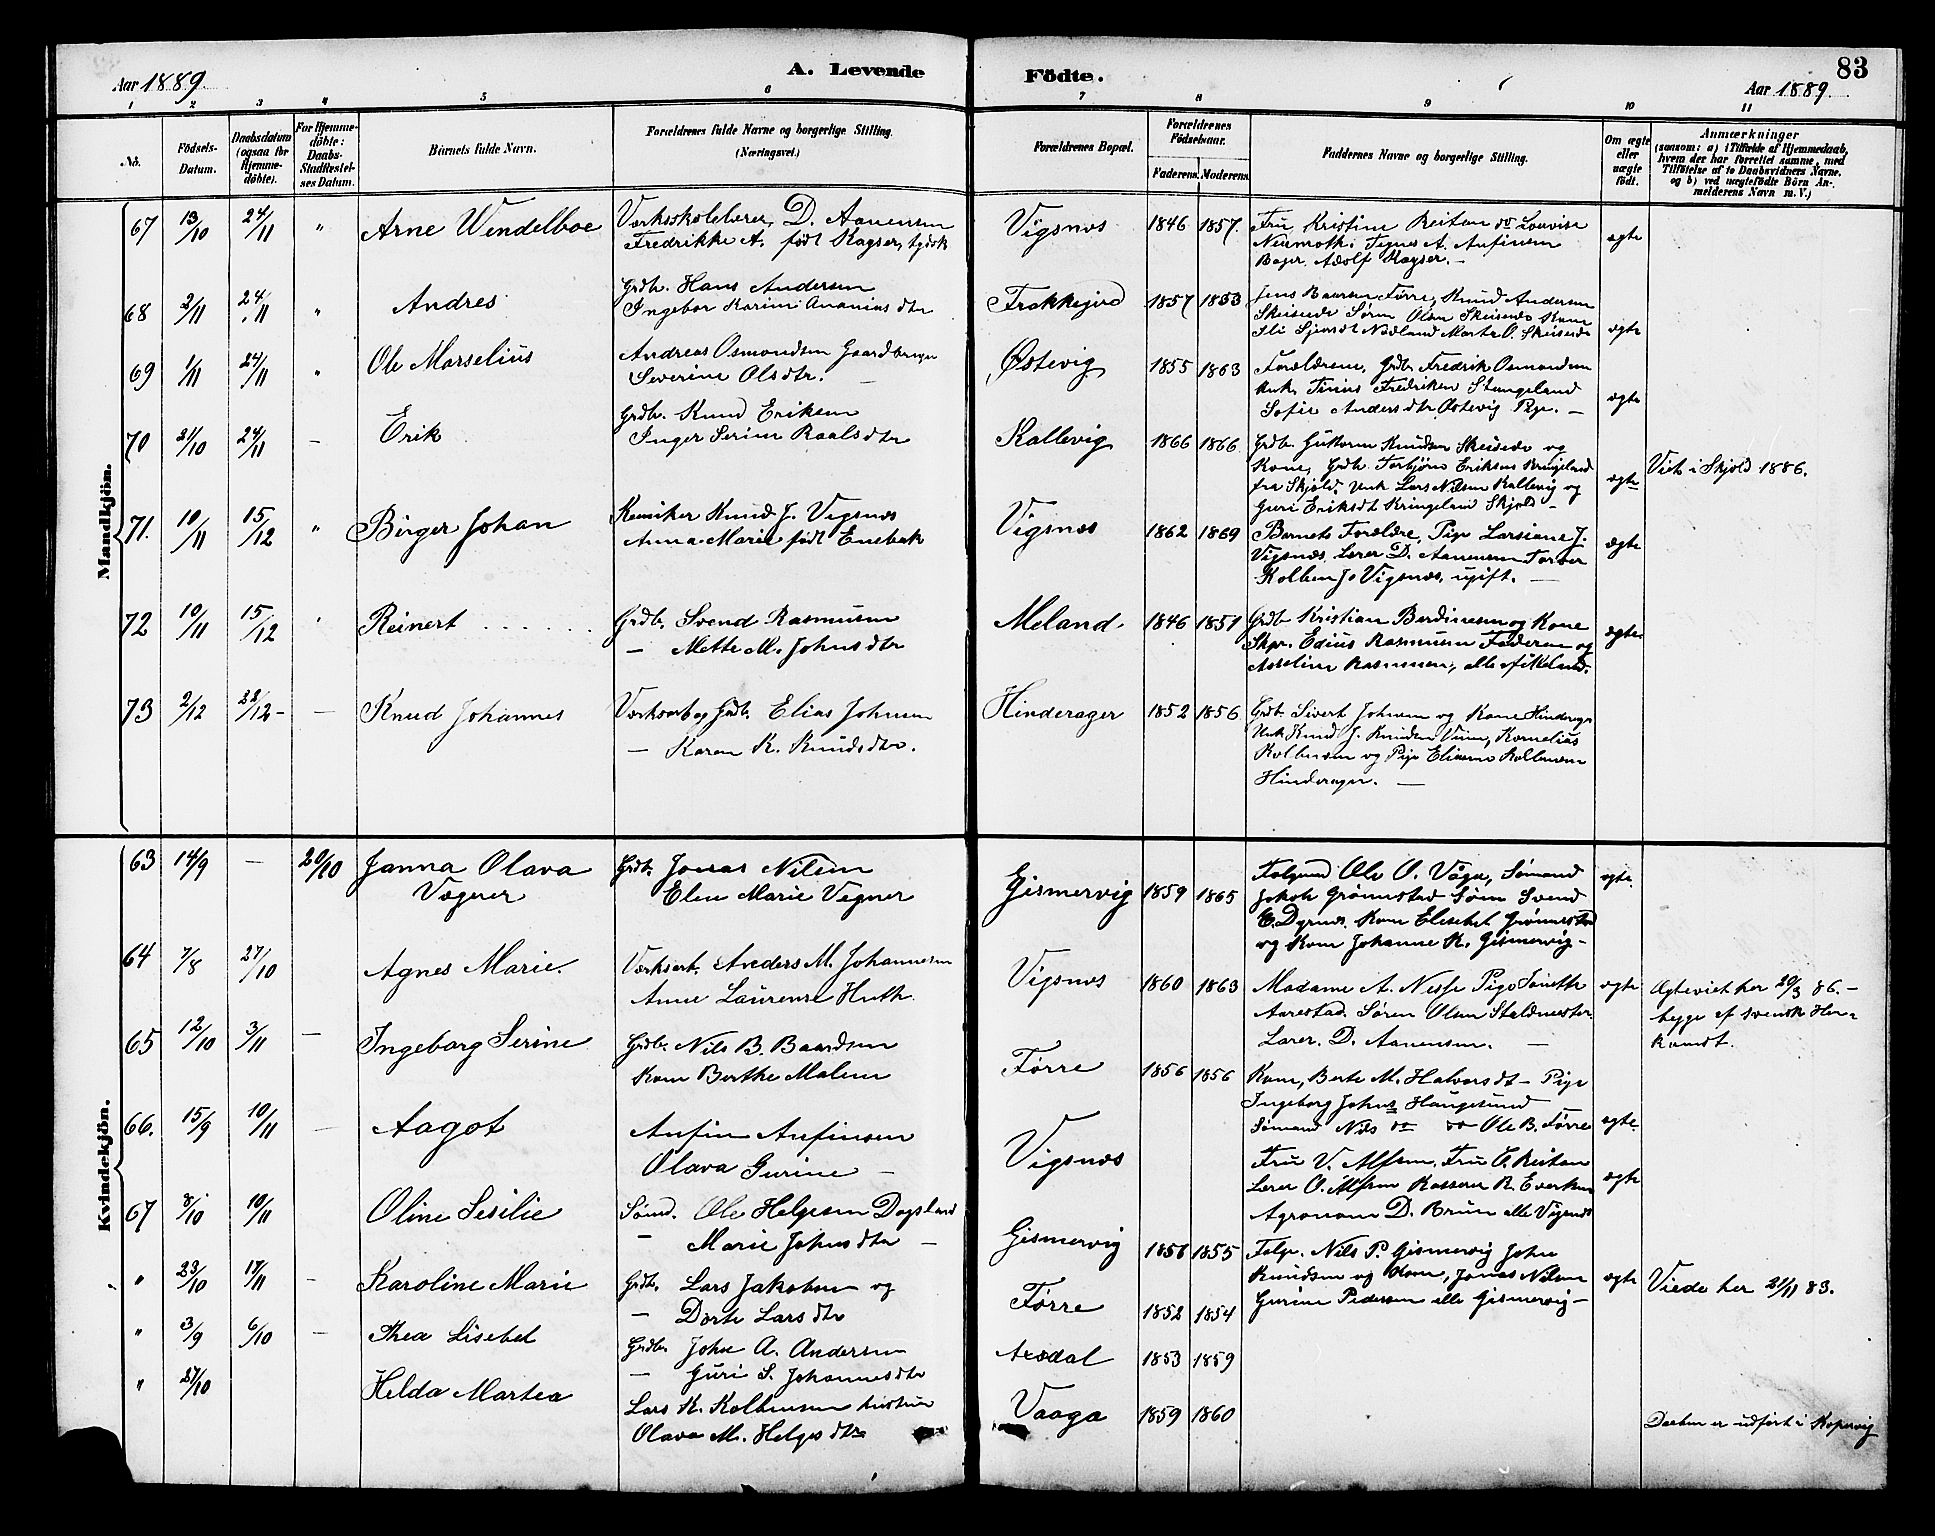 Aar 1889.
A. Levende
Födte.
83
Aar 1889.
1 2 3 4 5 6 7 8 9 10 11
No.
Födsels-Datum.
Daabsdatum (ogsaa for Hjemmedöbte).
For Hjemmedöbte: Daabs-Stadfæstelses Datum.
Barnets fulde Navn.
Forældrenes fulde Navne og borgerlige Stilling.
(Næringsvei.)
Forældrenes Bopæl.
Forældrenes Födselsaar.
Faderens. Moderens.
Faddernes Navne og borgerlige Stilling.
Om ægte eller uægte födt.
Anmærkninger
(saasom: a) i Tilfælde af Hjemmedaab, hvem der har forrettet samme, med Tilföielse af to Daabsvidners Navne, og b) ved uægtefödte Börn Anmelderens Navn m. V.)
Mandkjön.
67 13/10 24/11 " Arne Wendelboe
Værksskolelærer D. Aanensen
Fredrikke A. født Kayser, tydsk
Vigsnæs 1846 1857
Fru Kristine Reitan do Lovise
Neumroth. Tegner A. Anfinsen
Bager Adolf Kayser. —
ægte
68 2/11 24/11 " Andres
Grdb. Hans Andersen
Ingebor Karine Ananiasdtr
Frakkegjerd 1857 1853
Jens Baarsen Førre, Knud Andersen
Skeisede Søren Olsen Skeisede Kone
ægte
69 1/11 24/11 " Ole Marselius
Andreas Osmondsen Gaardbruger
Severine Olsdtr. —
Østevig 1855 1863
Forældrene, Grdb. Fredrik Osmondsen
Unk. Tinius Fredriksen Stangeland
Sofie Andersdtr Østevig Pige. —
ægte
70 21/10 24/11 — Erik
Grdb. Knud Eriksen
Inger Serine Raalsdtr
Kallevig 1866 1866
Grdb. Guttorm Knudsen Skeisede og
Kone, Grdb. Torbjørn Eriksen Kringeland
fra Skjold. Unk Lars Nilsen Kallevig og
Guri Eriksdt Kringeland Skjold —
ægte
Viet i Skjold 1886.
71. 10/11 15/12 " Birger Johan
Kemiker Knud J. Vigsnæs
Anna Marie født Enebak
Vigsnæs 1862 1869
Barnets Forældre, Pige Larsiane J.
Vigsnæs. Lærer D. Aanensen Farver
Kolben J. Vigsnæs, ugift. —
ægte
72 10/11 15/12 " Reinert
Grdb. Svend Rasmusen
— Mette M. Johnsdtr
Meland. 1846 1851
Grdb. Kristian Berdinesen og Kone
Skpr. Edius Rasmusen Faderen og
Asseline Rasmusen, alle af Meland.
ægte
73 2/12 28/12 — — Knud Johannes
Værksarb og Gdb. Elias Johnsen
— Karen K. Knudsdtr.
Hinderager 1852 1856
Grdb. Sivert Johnsen og Kone Hinderager
Unk Knud J. Knudsen Viken, Kornelius
Kolbensen og Pige Elisena Kolbensen
Hinderager. —
Kvindekjön.
63 14/9 — 20/10 Janna Olava
Vegner
Grdb. Jonas Nilsen
Elen Marie Vegner
Gismervig 1859 1865
Folgemd Ole O. Våge, Sømand
Jakob Grønnestad Sømand Svend
E. Dyrnes. Kone Elisebet Grønnestad
og Kone Johanne K. Gismervig —
ægte.
64 7/8 27/10 Agnes Marie.
Værksarb. Anders M. Johannesen
Anne Laurense Huth.
Vigsnæs 1860 1863
Madame A. Nesse Pige Tinette
Aarestad. Søren Olsen Staldmester.
Lærer. D. Aanensen. —
ægte
Ægteviet her 20/3 86. —
begge af svensk Her-
komst.
65 12/10 3/11 — Ingeborg Serine
Grdb. Nils B. Baardsen
Kone Berthe Malene
Førre 1856 1856
Kone, Berte M. Halvorsdt — Pige
Ingeborg Johns Haugesund
Sømand Nils do do Ole B. Førre
ægte.
66. 15/9 10/11 — Aagot
Anfin Anfinsen
Olava Gurine —
Vigsnæs
Fru V. Alfsen. Fru C. Reitan
Lærer O. Alfsen Kasserer R. Evertsen
Agronom D. Bruun alle Vigsnæs
ægte
67 8/10 10/11 Oline Sesilie
Sømd. Ole Helgesen Dagsland
" Marie Johnsdtr —
Gismervig 1858 1855
Folge. Nils P. Gismervig John
Knudsen og Kone, Jonas Nilsen
Gurine Pedersen alle Gismervig —
ægte
" 23/10 17/11 — Karoline Marie
Grdb. Lars Jakobsen og
— Dorte Larsdtr
Førre 1852 1854
Viede her 21/11 83.
" 3/9 6/10 — Thea Lisebet
Grdb. John A. Andersen
— Guri S. Johannesdtr
Axsdal 1853 1859
" 27/10 Helda Martea
Lars K. Kolbensen
Olava M. Helgesdtr
Vaaga 1859 1860
Daaben er udført i Kopervig